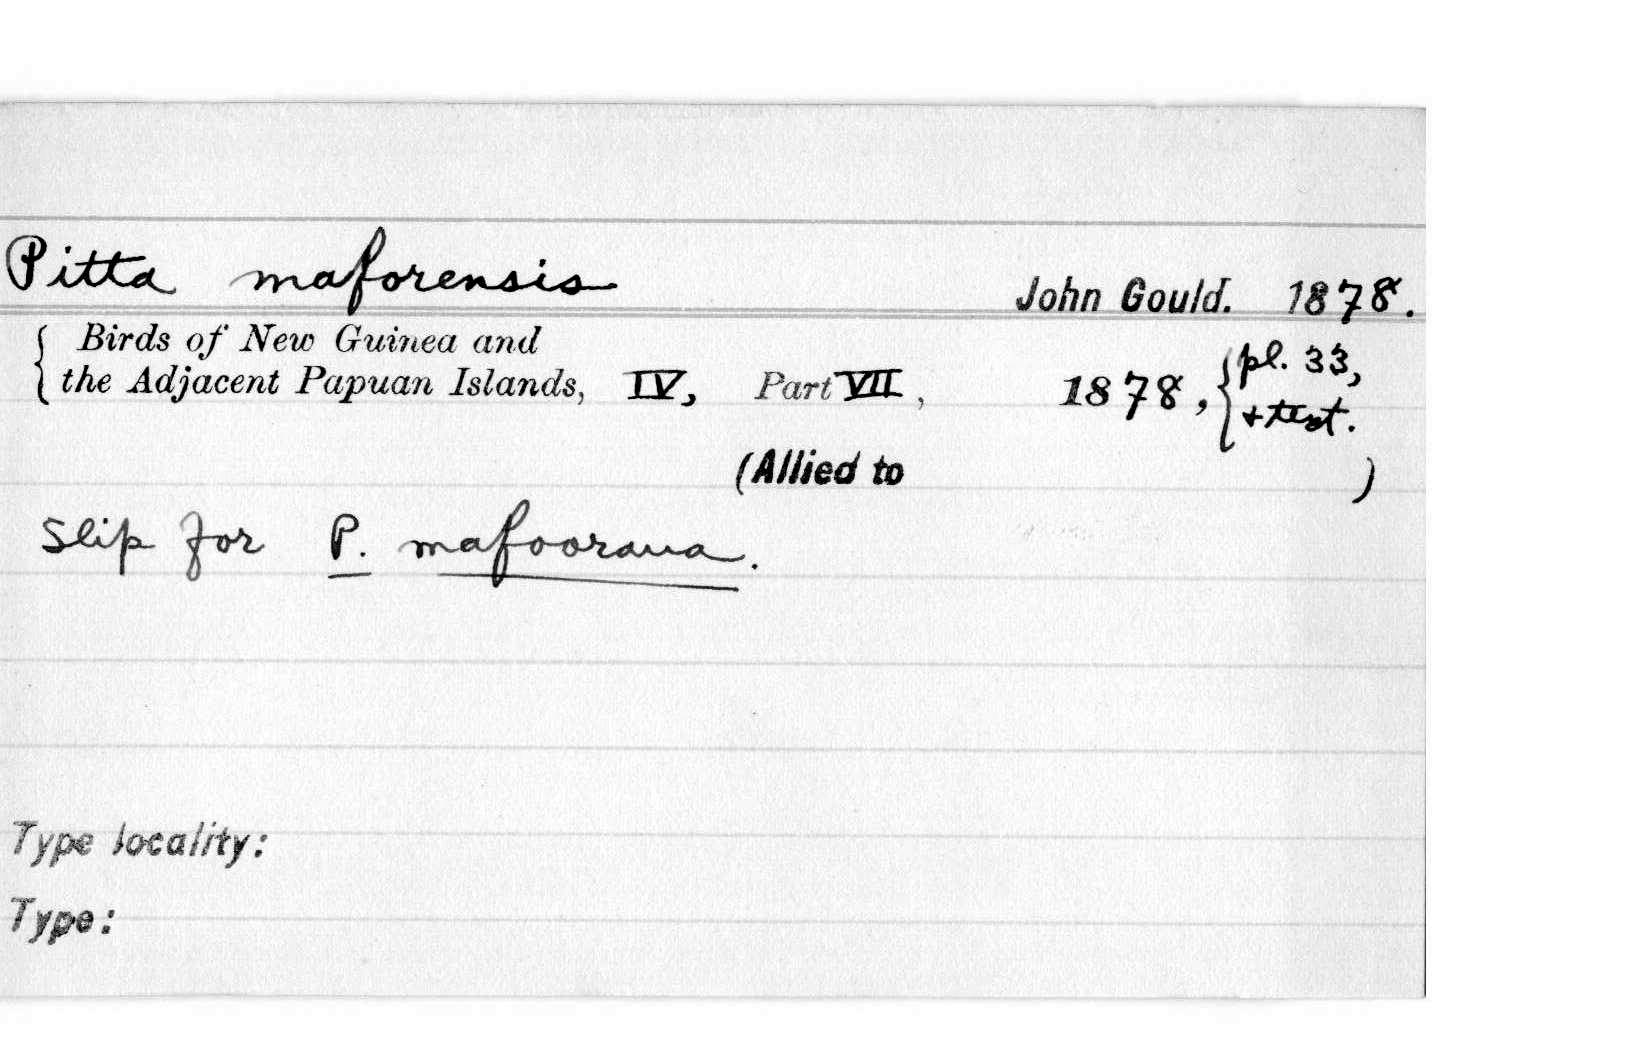 Pitta maforensis John Gould. 1878.
{ Birds of New Guinea and
the Adjacent Papuan Islands, IV, Part VII, 1878, { pl. 33,
+ text.
(Allied to )
Slip for P. mafoorana.
Type locality:
Type: